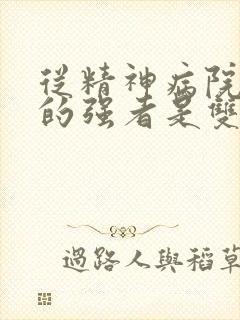 從精神病院
的强者是雙
過路人與稻草